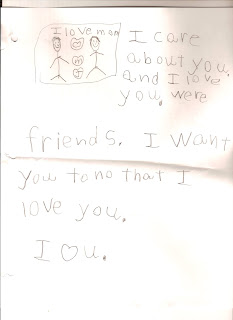 I love mom
I care
about you.
and I love
you. were
friends. I want
you to no that I
love you.
I ♡ u.